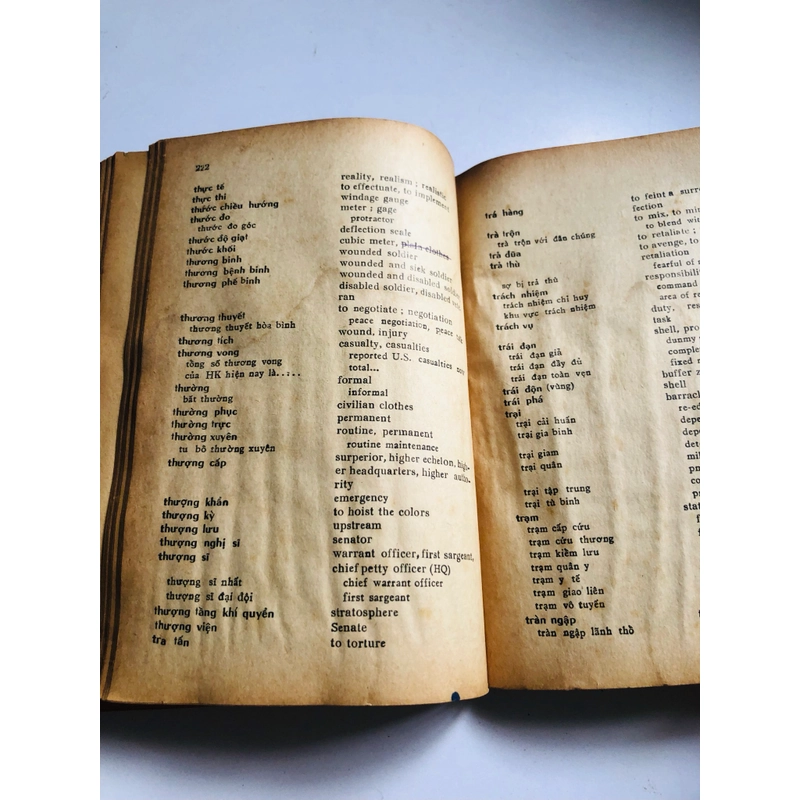 222
thực tế reality, realism ; realistic
thực thi to effectuate, to implement
thước chiều hướng windage gauge
thước đo meter ; gage
thước đo góc protractor
thước độ giạt deflection scale
thước khối cubic meter,
thương binh wounded soldier
thương bệnh binh wounded and sick soldier
thương phế binh wounded and disabled soldier,
disabled soldier, disabled
ran
thương thuyết to negotiate ; negotiation
thương thuyết hòa bình peace negotiation, peace
thương tích wound, injury
thương vong casualty, casualties
tổng số thương vong reported U.S. casualties now
của HK hiện nay là..... total...
thường formal
bất thường informal
thường phục civilian clothes
thường trực permanent
thường xuyên routine, permanent
tu bổ thường xuyên routine maintenance
thượng cấp surperior, higher echelon, high-
er headquarters, higher autho-
rity
thượng khẩn emergency
thượng kỳ to hoist the colors
thượng lưu upstream
thượng nghị sĩ senator
thượng sĩ warrant officer, first sargeant,
chief petty officer (HQ)
thượng sĩ nhất chief warrant officer
thượng sĩ đại đội first sargeant
thượng tầng khí quyển stratosphere
thượng viện Senate
tra tấn to torture
trá hàng to feint a surre
fection
trà trộn to mix, to min
trà trộn với dân chúng to blend wi
trả đũa to retaliate ;
trả thù to avenge, to
retaliation
sợ bị trả thù fearful of r
trách nhiệm responsibili
trách nhiệm chỉ huy command
khu vực trách nhiệm area of re
trách vụ duty, res
task
trái đạn shell, pro
trái đạn giả dummy
trái đạn đầy đủ comple
trái đạn toàn vẹn fixed r
trái độn (vùng) buffer z
trái phá shell
trại barrack
trại cải huấn re-ed
trại gia binh depe
dep
trại giam dete
trại quân mil
pri
trại tập trung
trại tù binh
trạm stat
trạm cấp cứu
trạm cứu thương
trạm kiểm lưu
trạm quân y
trạm y tế
trạm giao liên
trạm vô tuyến
tràn ngập
tràn ngập lãnh thổ